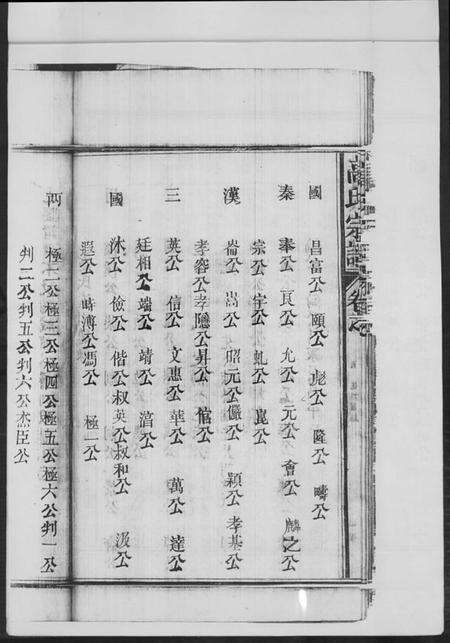 氏宗譜 卷之
國 昌富公 頤公 彪公 隆公 疇公
秦 舉公 良公 允公 元公 會公 麟之公
宗公 宇公 虬公 崑公
漢 崙公 嵩公 昭元公 儼公 穎公 孝基公
孝容公 孝騭公 昇公 信公
三 英公 信公 文惠公 華公 萬公 達公
廷相公 端公 靖公 滔公
國 沐公 儉公 偕公 叔英公 叔和公 汲公
遐公 時溥公 馮公 極一公
兩 極二公 極三公 極四公 極五公 極六公 判一公
判二公 判五公 判六公 杰臣公